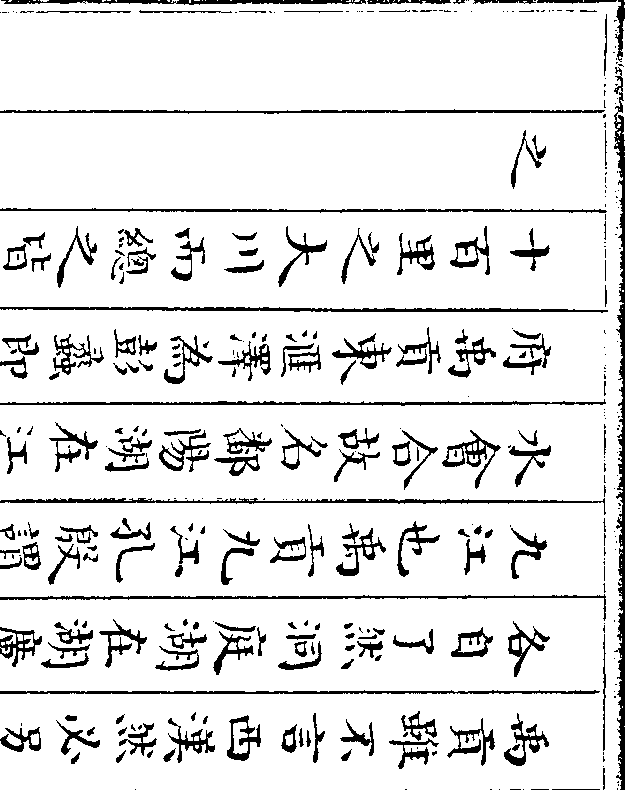 禹貢雖不言西漢然必另
各自了然洞庭湖在湖廣
九江也禹貢九江孔殷謂
水會合故名鄱陽湖在江
府禹貢東滙澤為彭蠡即
十百里之大川而總之皆
之